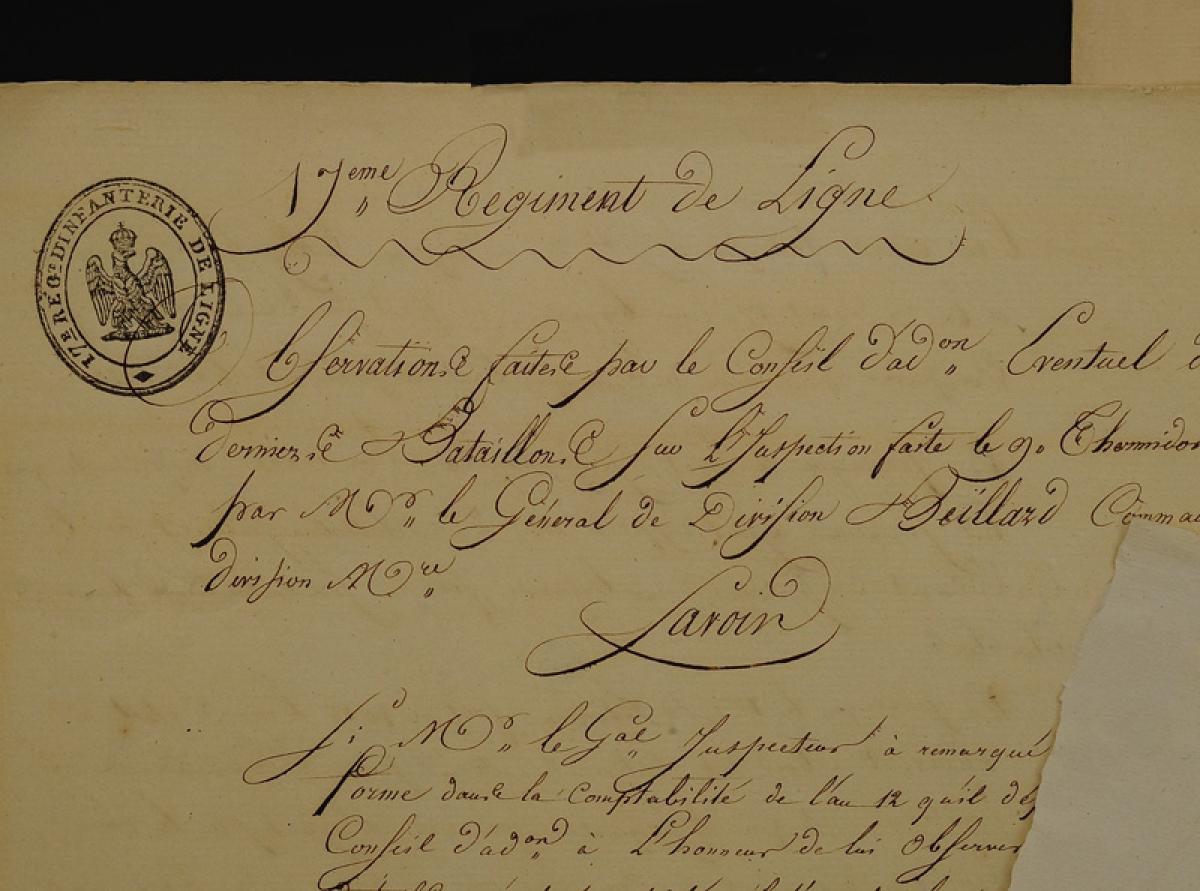 17eme Regiment de Ligne
17E RÉGT. D'INFANTERIE DE LIGNE
Observations faites par le Conseil d'adon Eventuel d
derniers Bataillons sur L'Inspection faite le 9. Thermidor
par Mr. le Géneral de Division Béïllard Comma
division Mre
Savoir
Si Mr. le Gal Inspecteur à remarqué
forme dans la comptabilité de l'an 12 qu'il
Conseil d'adon à L'honneur de lui Observer